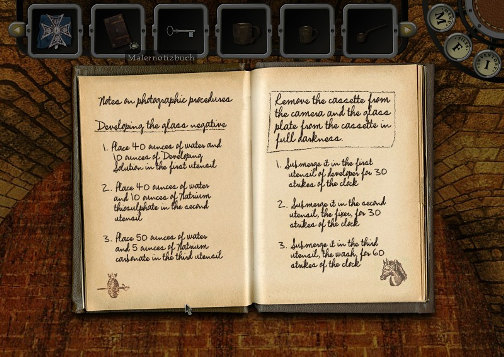 M
F
I
Malernotizbuch
Notes on photographic procedures
Developing the glass negative
1. Place 40 ounces of water and
10 ounces of Developing
Solution in the first utensil
2. Place 40 ounces of water
and 10 ounces of Natrium
thiosulphate in the second
utensil
3. Place 50 ounces of water
and 5 ounces of Natrium
carbonate in the third utensil
Remove the cassette from
the camera and the glass
plate from the cassette in
full darkness.
1. Submerge it in the first
utensil of developer for 30
strikes of the clock
2. Submerge it in the second
utensil, the fixer, for 30
strikes of the clock
3. Submerge it in the third
utensil, the wash, for 60
strikes of the clock